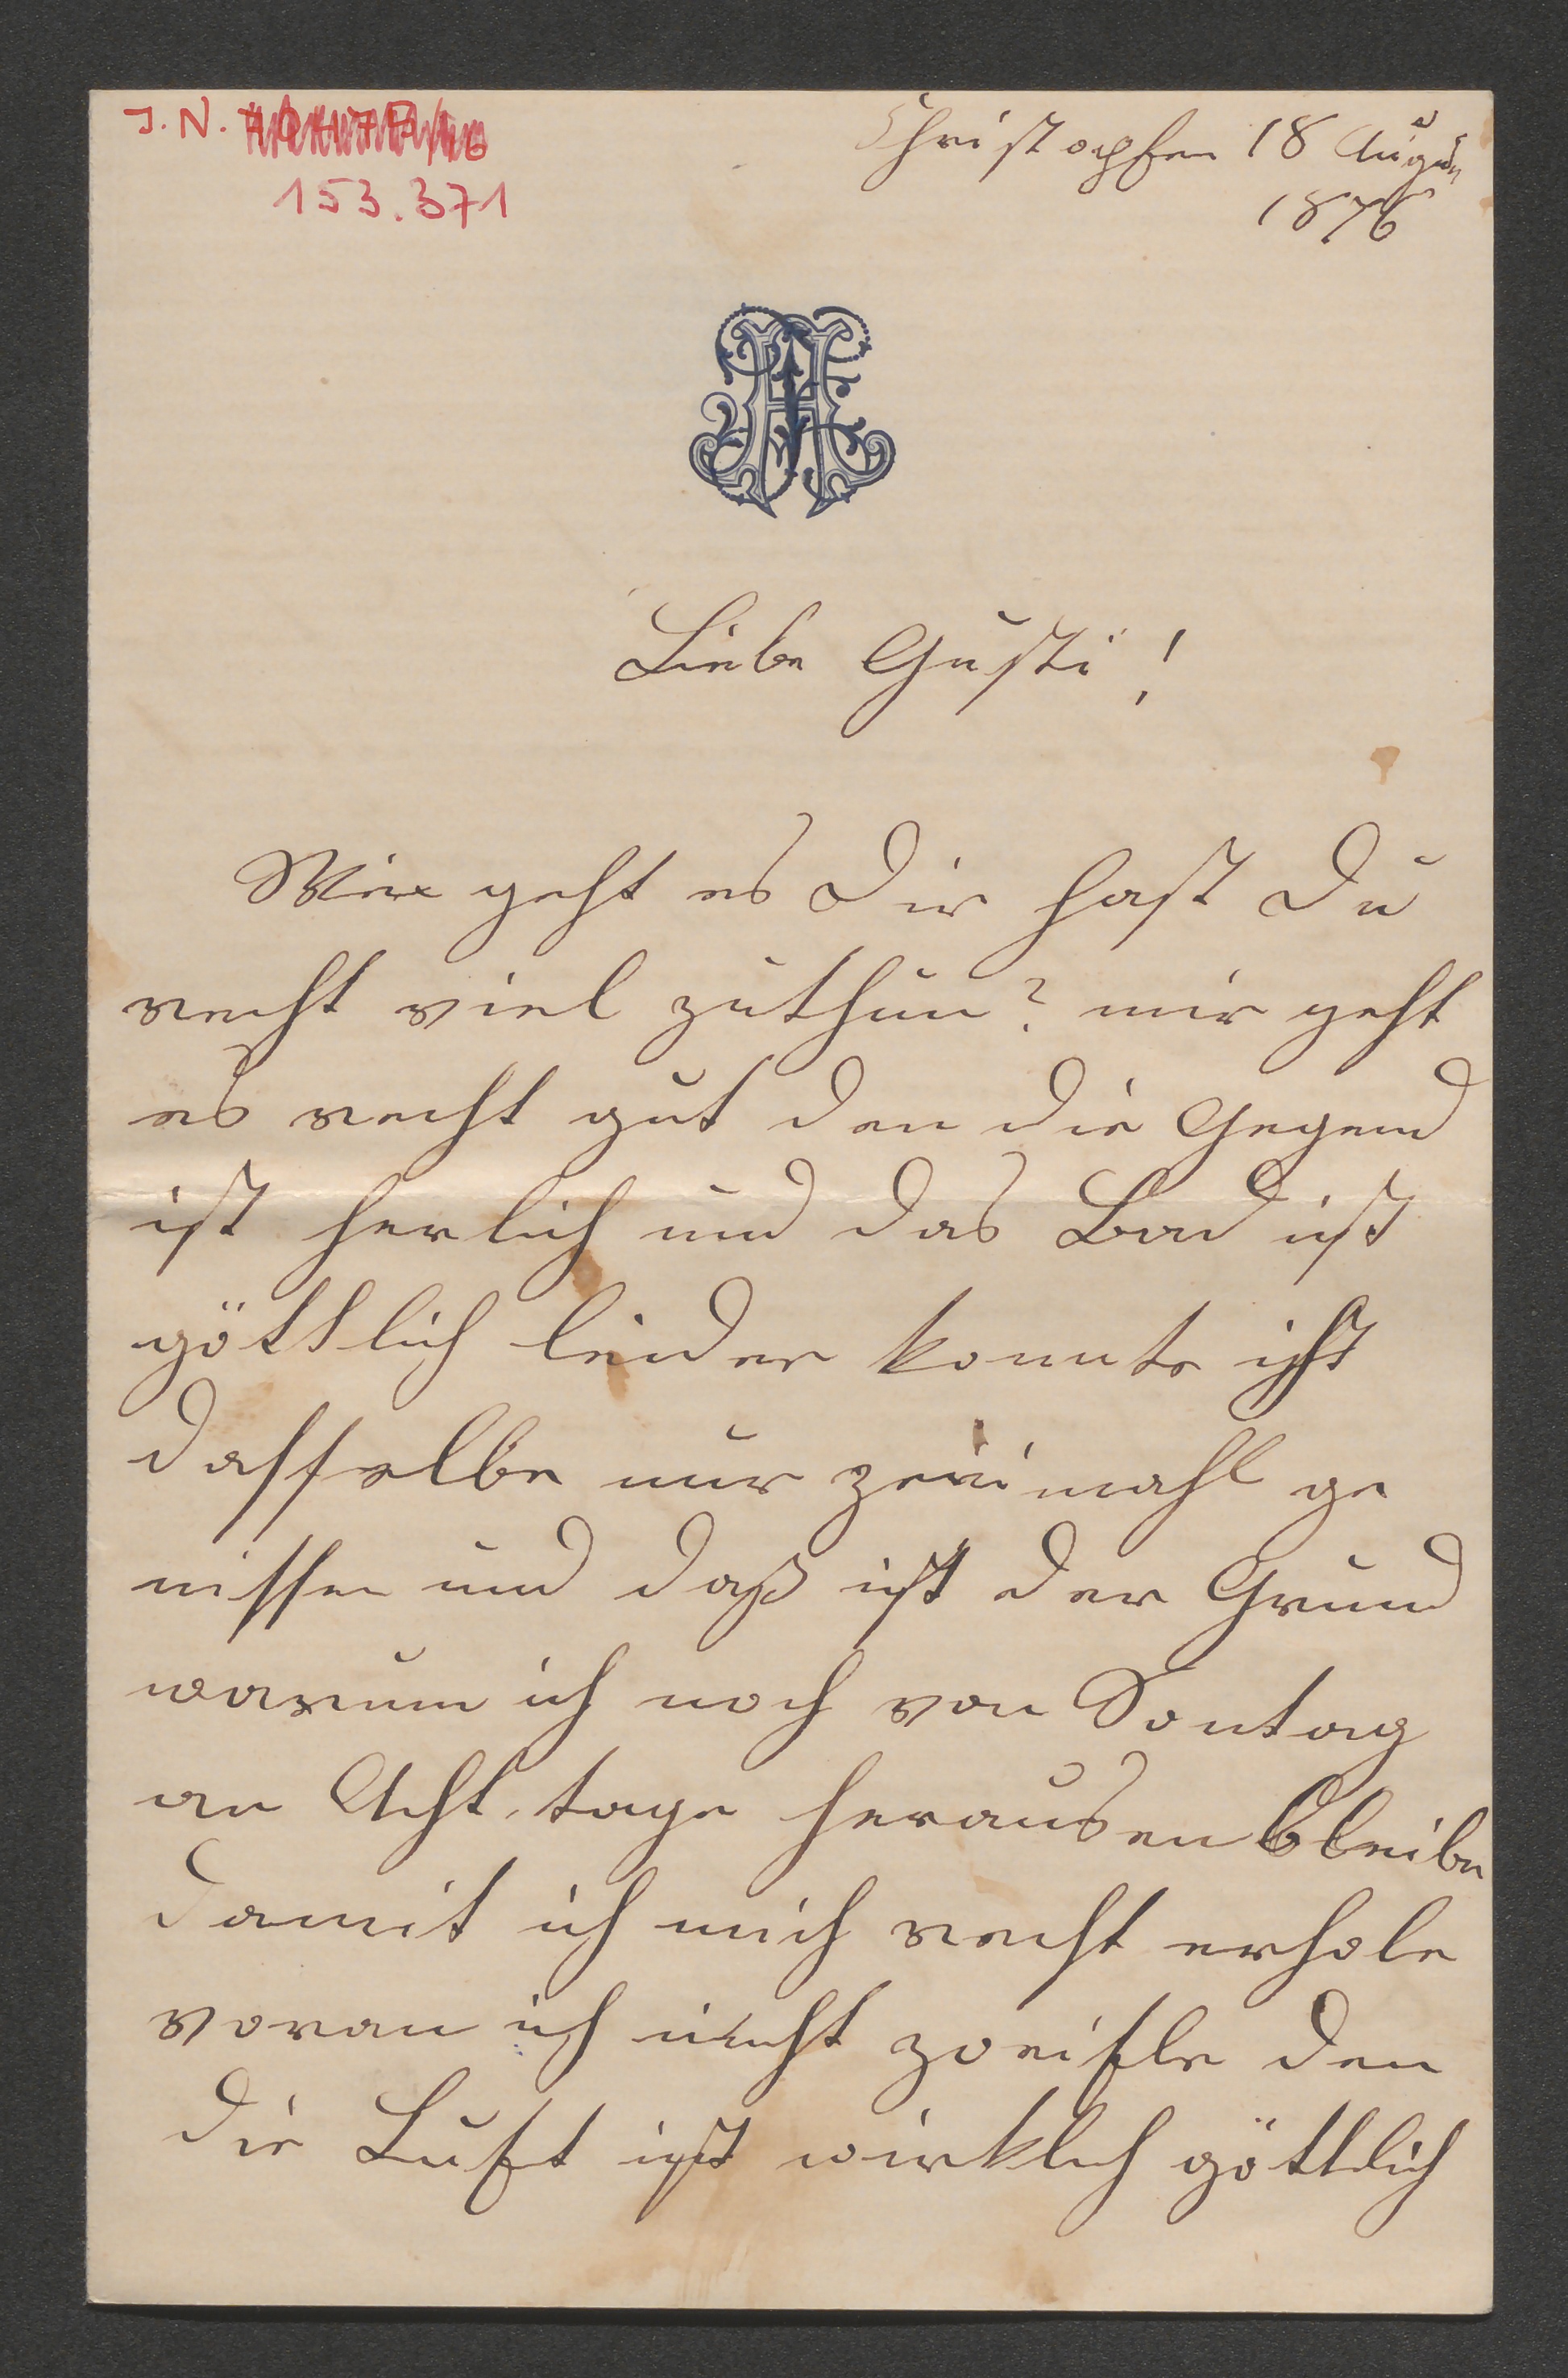 J. N.
153.371
Christophen 18 August
1876
Liebe Gusti!
Wie geht es Dir hast Du
recht viel zuthun? mir geht
es recht gut den die Gegend
ist herlich und das Bad ist
göttlich leider konnte ich
dasselbe nur zweimahl ge
nissen und daß ist der Grund
warum ich noch von Sontag
an Acht tage herausen bleibe
damit ich mich recht erhole
voran ich nicht zweifle den
die Luft ist wirklich göttlich